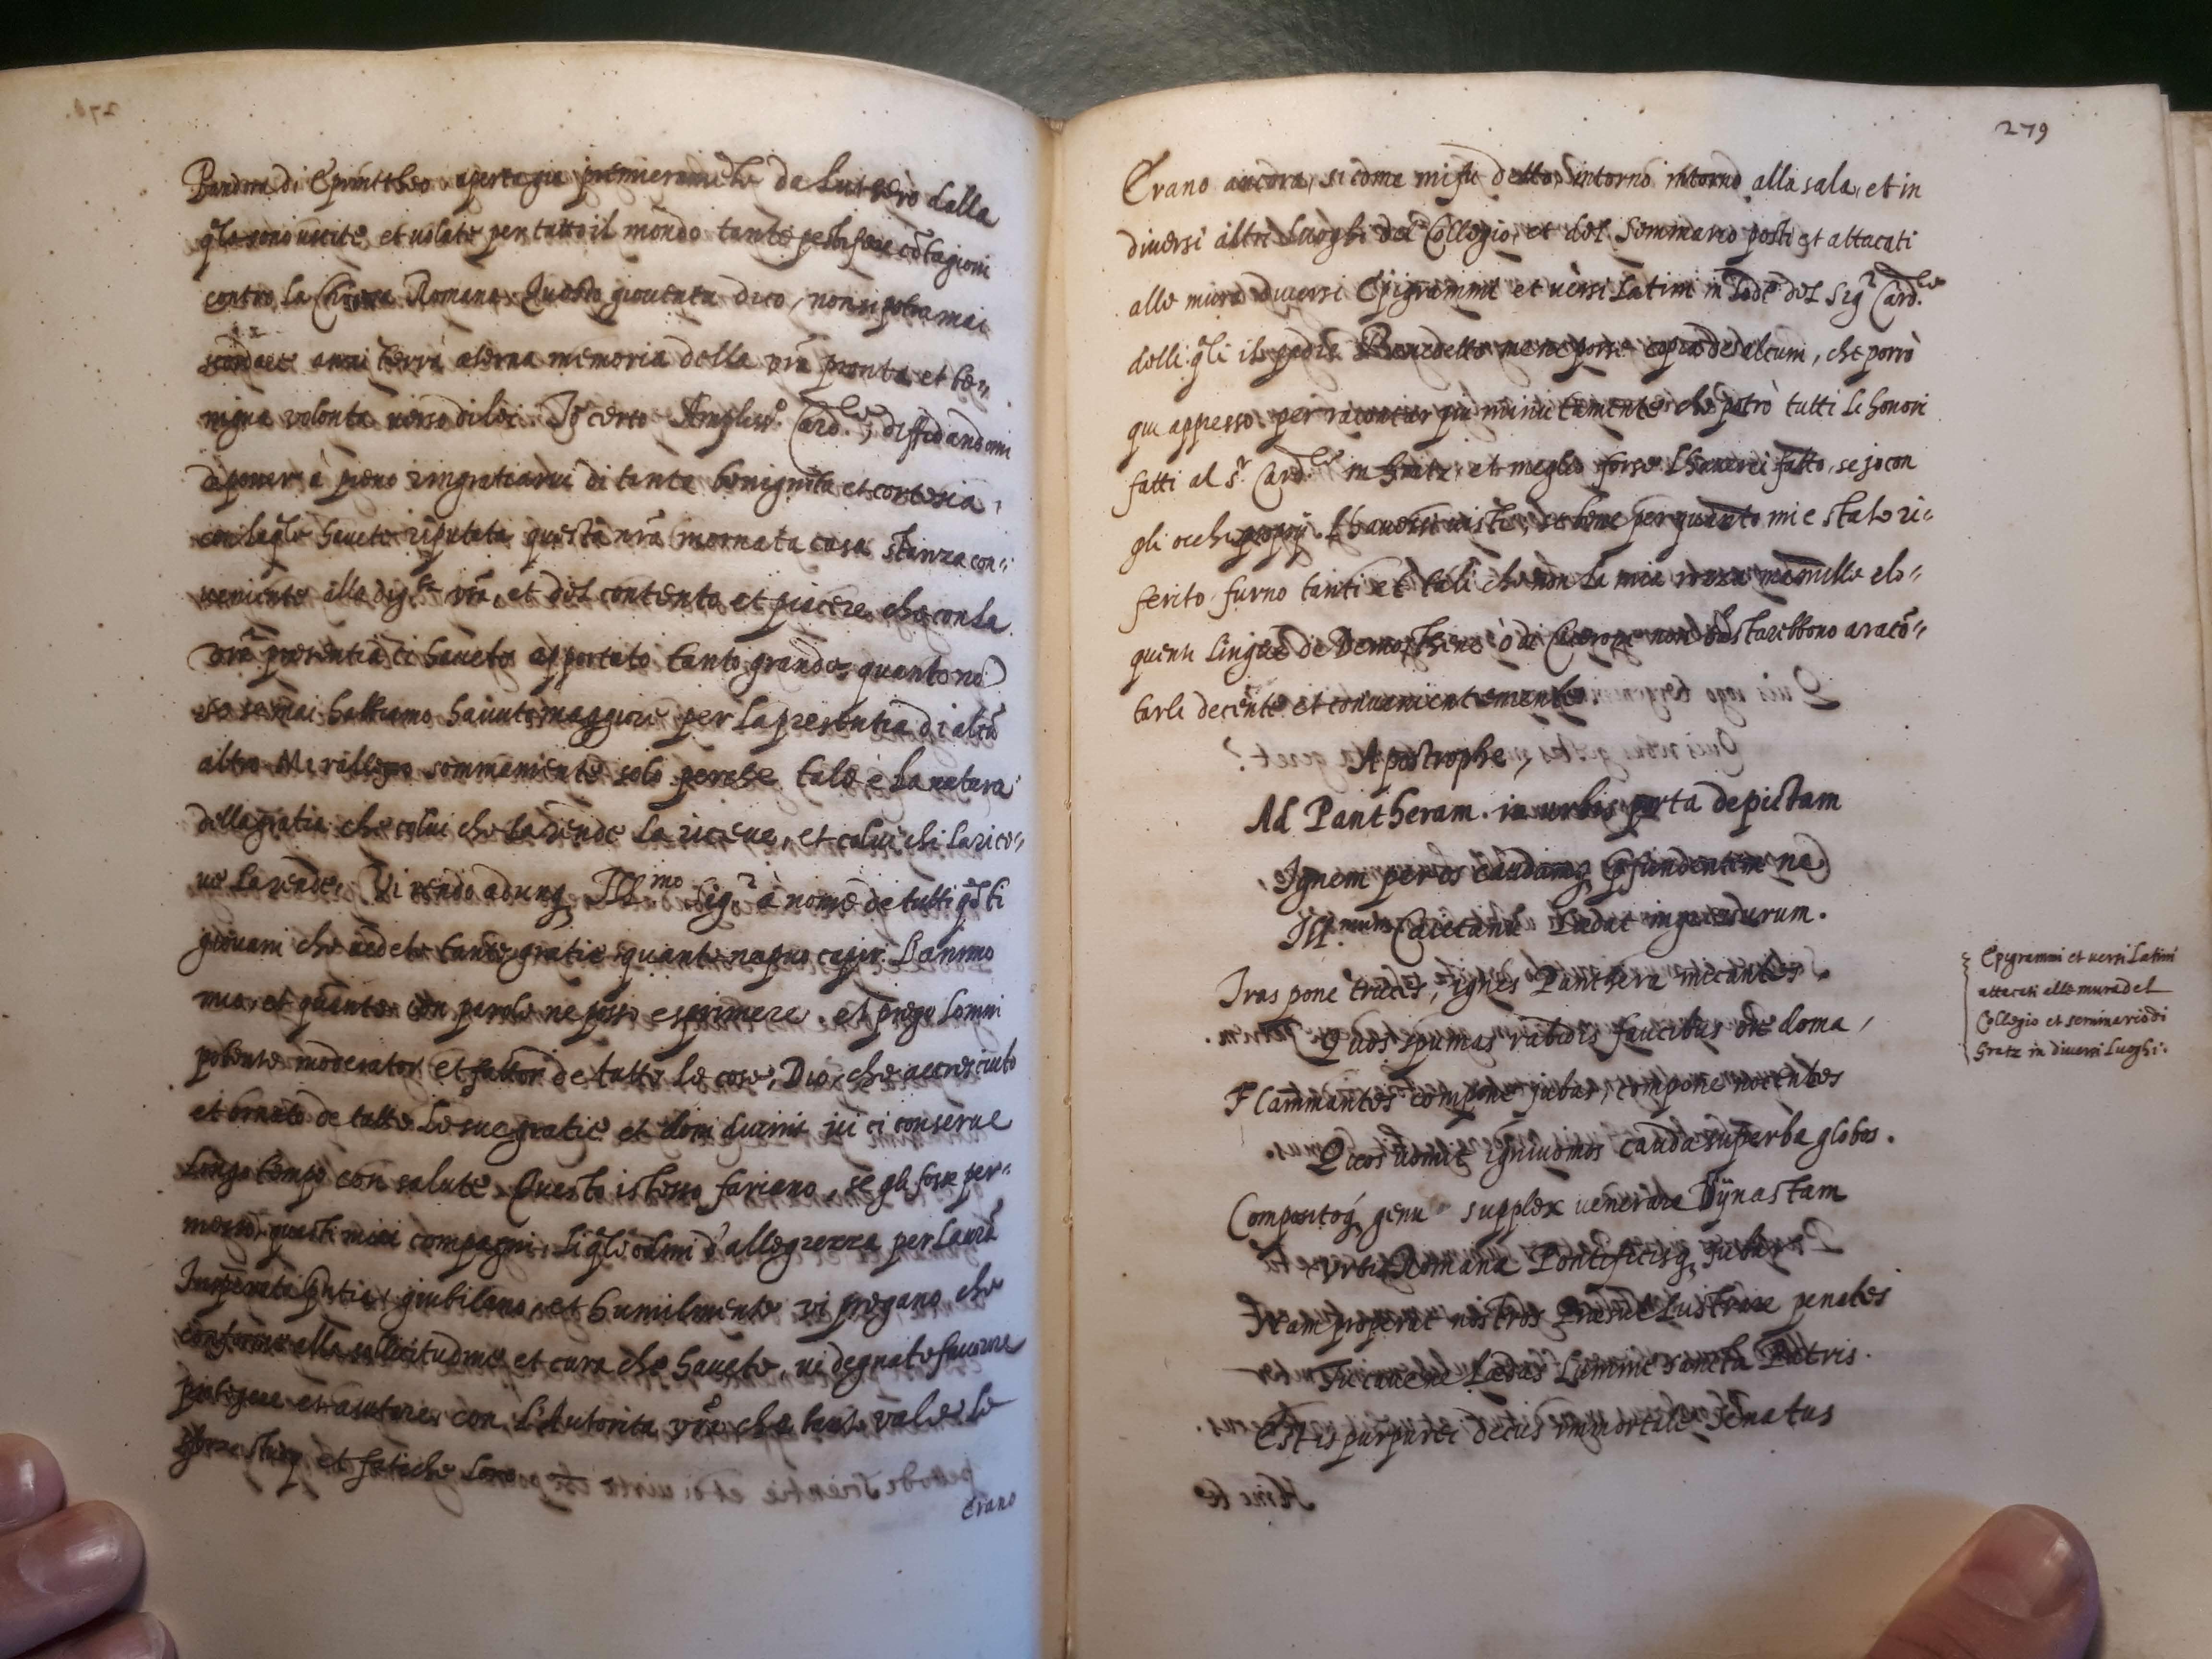 Pandora di Epimitheo aperta gia premieramēte da Lutero dalla
q̄le sono uscite, et uolate per tutto il mondo tante pestifere cōtagioni
contro la Chiesa Romana. Questa gioventu dico, non si potra mai
scordare anzi terrà aterna memoria della vrā pronta et be„
nigna volonta verso di lei. Io certo Ampliss.º Card.le, diffidandomi
di poner à pieno ringratiarui di tanta benignità et cortesia,
con laq̄le havete riputata questa nrā inornata casa stanza con„
veniente alla dig.tà vrā, et del contento et piacere, che con la
vrā presentia ci havete apportato tanto grande, quanto nō
so se mai habbiamo havuto maggiore per la presentia di alcū
altro. Mi rallegro sommamente solo perche tale è la natura
della gratia che colui che la rende la riceve, et colui chi la rice„
ve la rende. Vi rendo adunq; Ill.mo Sig.r à nome de tutti q̄sti
giovani che vedete tante gratie quante ne puo capir l'animo
mio, et quante con parole ne posso esprimere. et prego l'omni
potente moderator et fattor de tutte le cose, Dio, che accresciuto
et ornato de tutte le sue gratie et doni divini vi ci conserve
longo tempo con salute. Questo istesso fariano, se gli fosse per„
messo, questi miei compagni, li q̄li colmi d'allegrezza per la vrā
insperata pñtia, giubilano, et humilmente vi pregano che
conforme alla sollicitudine et cura che havete, vi degnate favorire
protegere et aiutare con l'Autorita vrā che tanto vale le
et fatiche loro
erano
279
Erano ancora, si come mi fu detto, intorno intorno alla sala, et in
diversi altri luoghi del Collegio, et del Seminario posti et attacati
alle mura diversi Epigrammi et versi Latini in lode del Sig.r Card.le
delli q̄li il padre Benedetto me ne porse copia de alcuni, che porrò
qui appresso per racontar piu minutamente che potrò tutti li honori
fatti al S.r Card.le in Gratz, et meglio forse l'haverei fatto, se jo con
gli occhi proprij l'havessi viste, se bene per quanto mi e stato ri„
ferito furno tanti et tali che non la mia rozza ma mille elo„
quenti lingue de Demosthene ò di Cicerone non bastarebbono a racō„
tarli decente et convenientemente.
Apostrophe,
Ad Pantheram. in urbis porta depictam
Ignem per os caudamq; effundentem ne
Ill.mum Caietanū lædat ingressurum.
Iras pone truces, ignes Panthera micantes
Quos spumas rabidis faucibus ore doma,
Flammantes compone jubas, compone nocentes
Quos vomit ignivomos cauda superba globos.
Compositoq; genu supplex venerare Dÿnastam
Urbis Romanæ Pontificisq; Jubar
Nam properat nostros Præsul lustrare penates
Tu cave ne lædas lumine sancta Patris.
Est is purpurei decus immortale Senatus
Epigrammi et versi Latini
attacati alle mura del
Collegio et seminario di
Gratz in diversi luoghi.